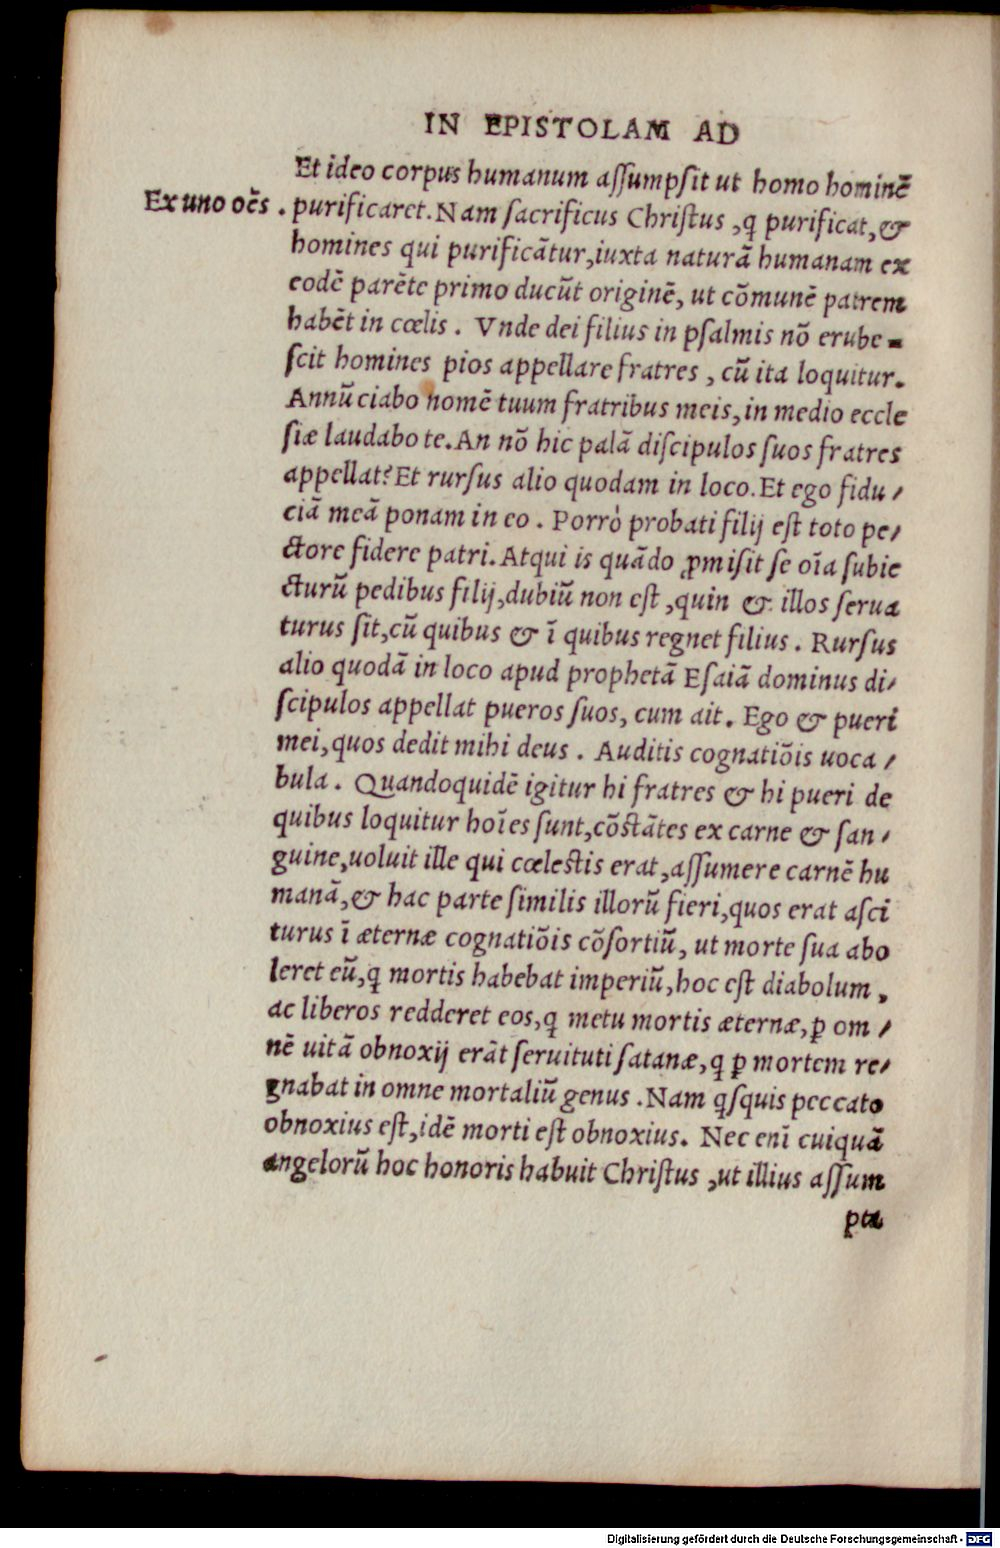 IN EPISTOLAM AD
Et ideo corpus humanum aſſumpſit ut homo hominē
Ex uno oēs .
purificaret. Nam ſacrificus Chriſtus , q̃ purificat, &
homines qui purificātur, iuxta naturā humanam ex
eodē parēte primo ducūt originē, ut cōmunē patrem
habēt in cœlis . Vnde dei filius in pſalmis nō erube-
ſcit homines pios appellare fratres , cū ita loquitur.
Annūciabo nomē tuum fratribus meis, in medio eccle
ſiæ laudabo te. An nō hic palā diſcipulos ſuos fratres
appellat? Et rurſus alio quodam in loco. Et ego fidu/
ciā meā ponam in eo . Porrò probati filij eſt toto pe/
ctore fidere patri. Atqui is quādo ꝓmiſit ſe oīa ſubie
cturū pedibus filij, dubiū non eſt , quin & illos ſerua
turus ſit, cū quibus & ī quibus regnet filius . Rurſus
alio quodā in loco apud prophetā Eſaiā dominus di/
ſcipulos appellat pueros ſuos, cum ait. Ego & pueri
mei, quos dedit mihi deus . Auditis cognatiōis uoca/
bula . Quandoquidē igitur hi fratres & hi pueri de
quibus loquitur hoīes ſunt, cōſtātes ex carne & ſan/
guine, uoluit ille qui cœleſtis erat , aſſumere carnē hu
manā, & hac parte ſimilis illorū fieri, quos erat aſci
turus ī æternæ cognatiōis cōſortiū, ut morte ſua abo
leret eū, q̃ mortis habebat imperiū, hoc eſt diabolum ,
ac liberos redderet eos, q̃ metu mortis æternæ, ꝑ om/
nē uitā obnoxij erāt ſeruituti ſatanæ, q̃ ꝑ mortem re/
gnabat in omne mortaliū genus . Nam q̃ſquis peccato
obnoxius eſt, idē morti eſt obnoxius. Nec enī cuiquā
angelorū hoc honoris habuit Chriſtus , ut illius aſſum
pta
Digitalisierung gefördert durch die Deutsche Forschungsgemeinschaft - DFG